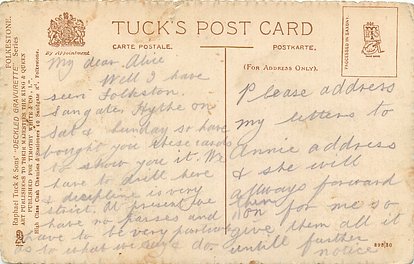 TUCK'S POST CARD
CARTE POSTALE.
POSTKARTE.
By Appointment
(FOR ADDRESS ONLY).
PROCESSED IN SAXONY.
FOLKESTONE.
Raphael Tuck & Sons' "DECKLED GRAVURETTE" Series
ART PUBLISHERS TO THEIR MAJESTIES THE KING & QUEEN
PUBLISHED FOR TIMOTHY WHITE
High Class Cash Chemists & Stationers
Folkestone.
My dear Alice
Well I have
seen Folkston
Sangate, Hythe on
Sat & Sunday so have
bought you these cards
to show you it. We
have to drill here
& discipline is very
strict. At present we
have no passes and
have to be very particular
as to what we say & do.
Please address
my letters to
Annie address
& she will
allways forward
them
on for me so
give them all it
untill further
notice